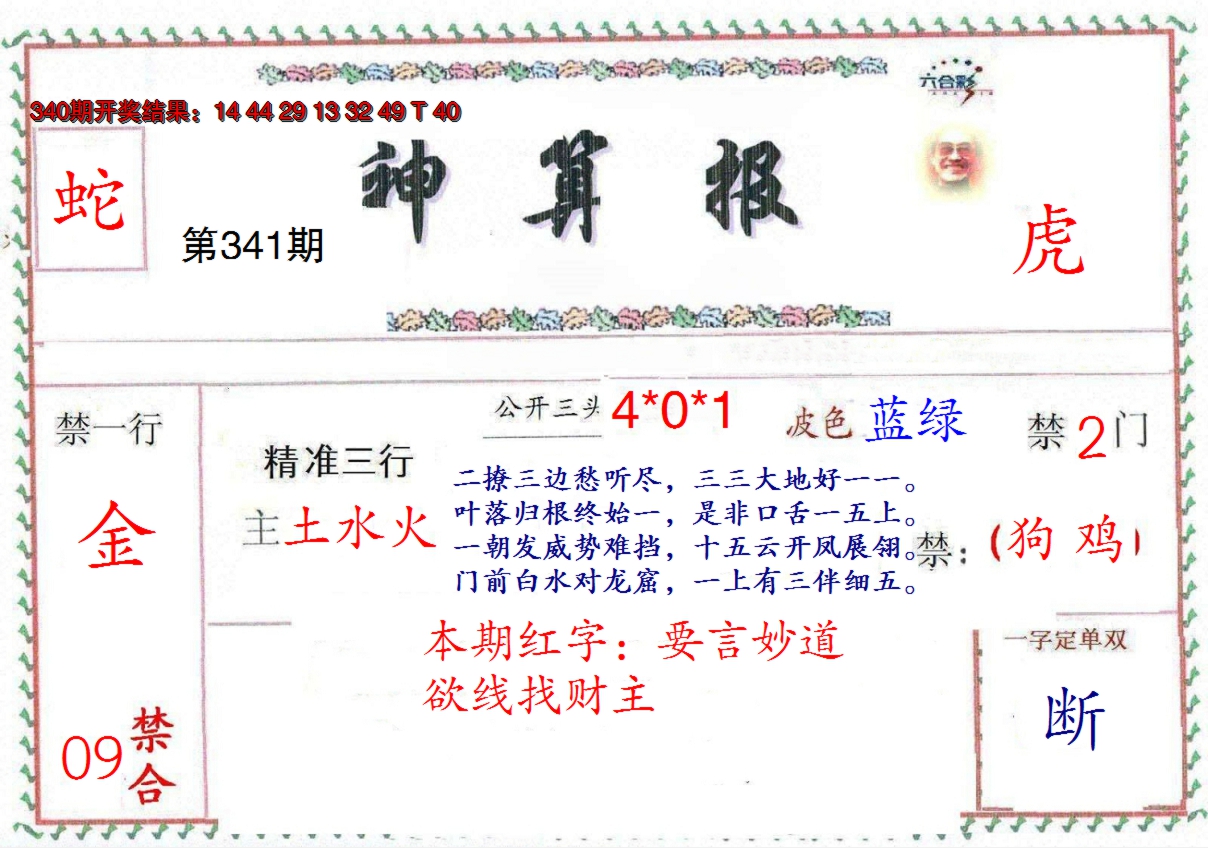 六合彩
340期开奖结果：14 44 29 13 32 49 T 40
神算报
蛇
第341期
虎
公开三头 4*0*1
波色 蓝绿
禁一行
禁2门
精准三行
主土水火
金
二撩三边愁听尽，三三大地好一一。
叶落归根终始一，是非口舌一五上。
一朝发威势难挡，十五云开凤展翎。
门前白水对龙窟，一上有三伴细五。
禁：（狗 鸡）
本期红字：要言妙道
欲线找财主
一字定单双
断
09禁合